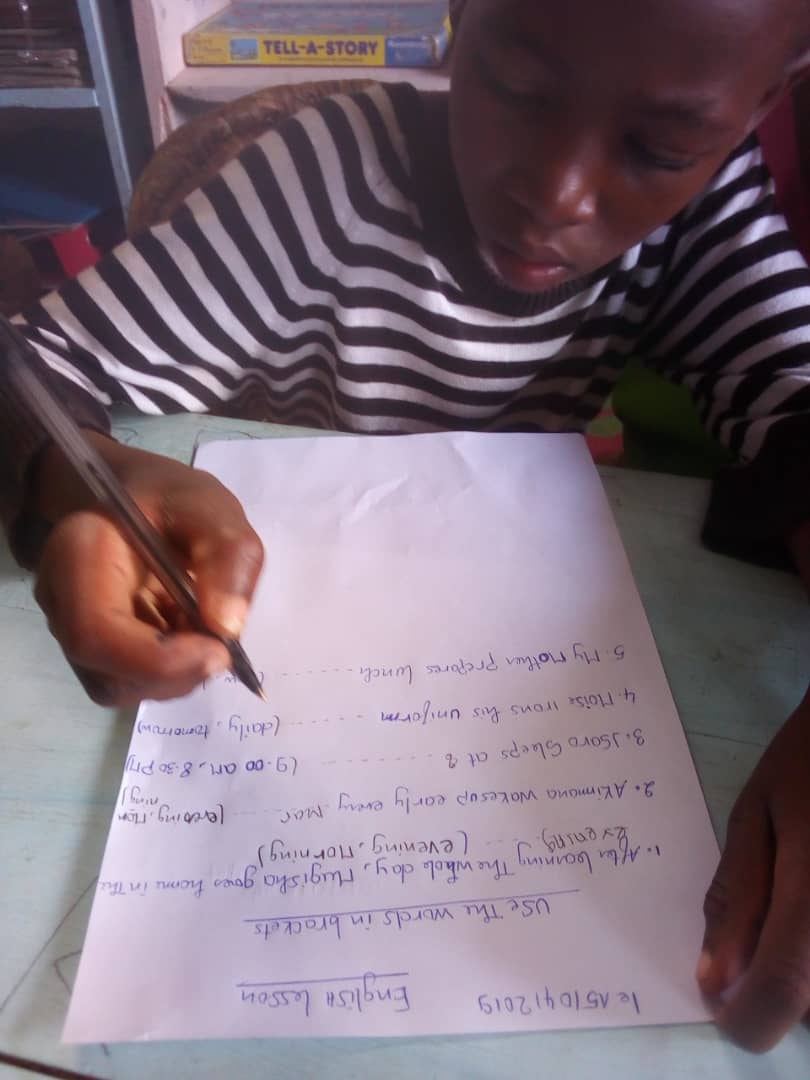 TELL-A-STORY
le 15/04/2019
English Lesson
Use The words in brackets
1. After learning The whole day, Mugisha goes home in The
evening. ... (evening, Morning)
2. Akimana wakes up early every Mor ... (evening, Mor
ning)
3. Isaro Sleeps at 8 ......... (9.00 am, 8.30 PM)
4. Moise irons his uniform ...... (daily, tomorrow)
5. My Mother prepares lunch ....... (